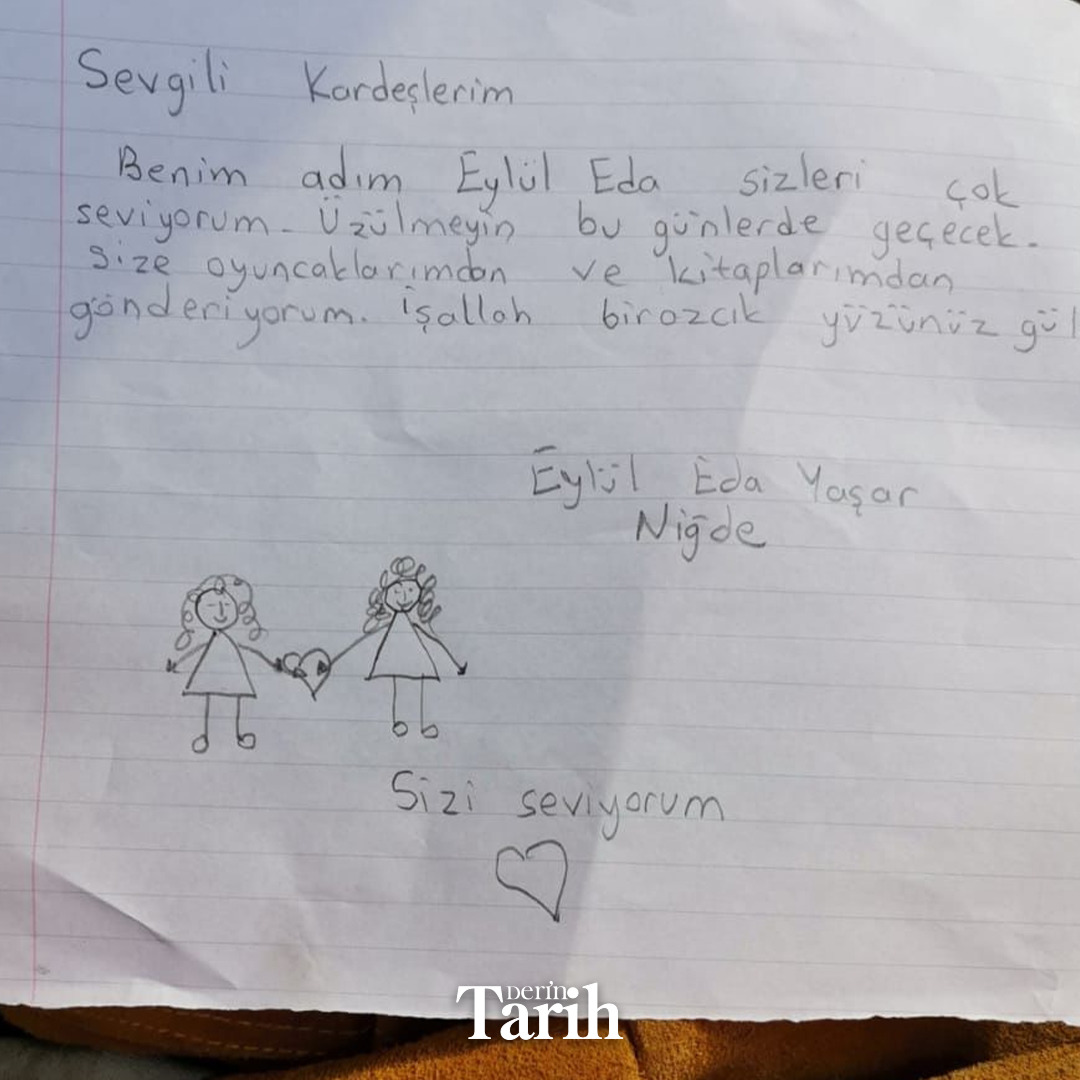 Sevgili Kardeşlerim
Benim adım Eylül Eda sizleri çok
seviyorum. Üzülmeyin bu günlerde geçecek.
Size oyuncaklarımdan ve kitaplarımdan
gönderiyorum. İşallah birazcık yüzünüz gül
Eylül Eda Yaşar
Niğde
Sizi seviyorum
Derin
Tarih